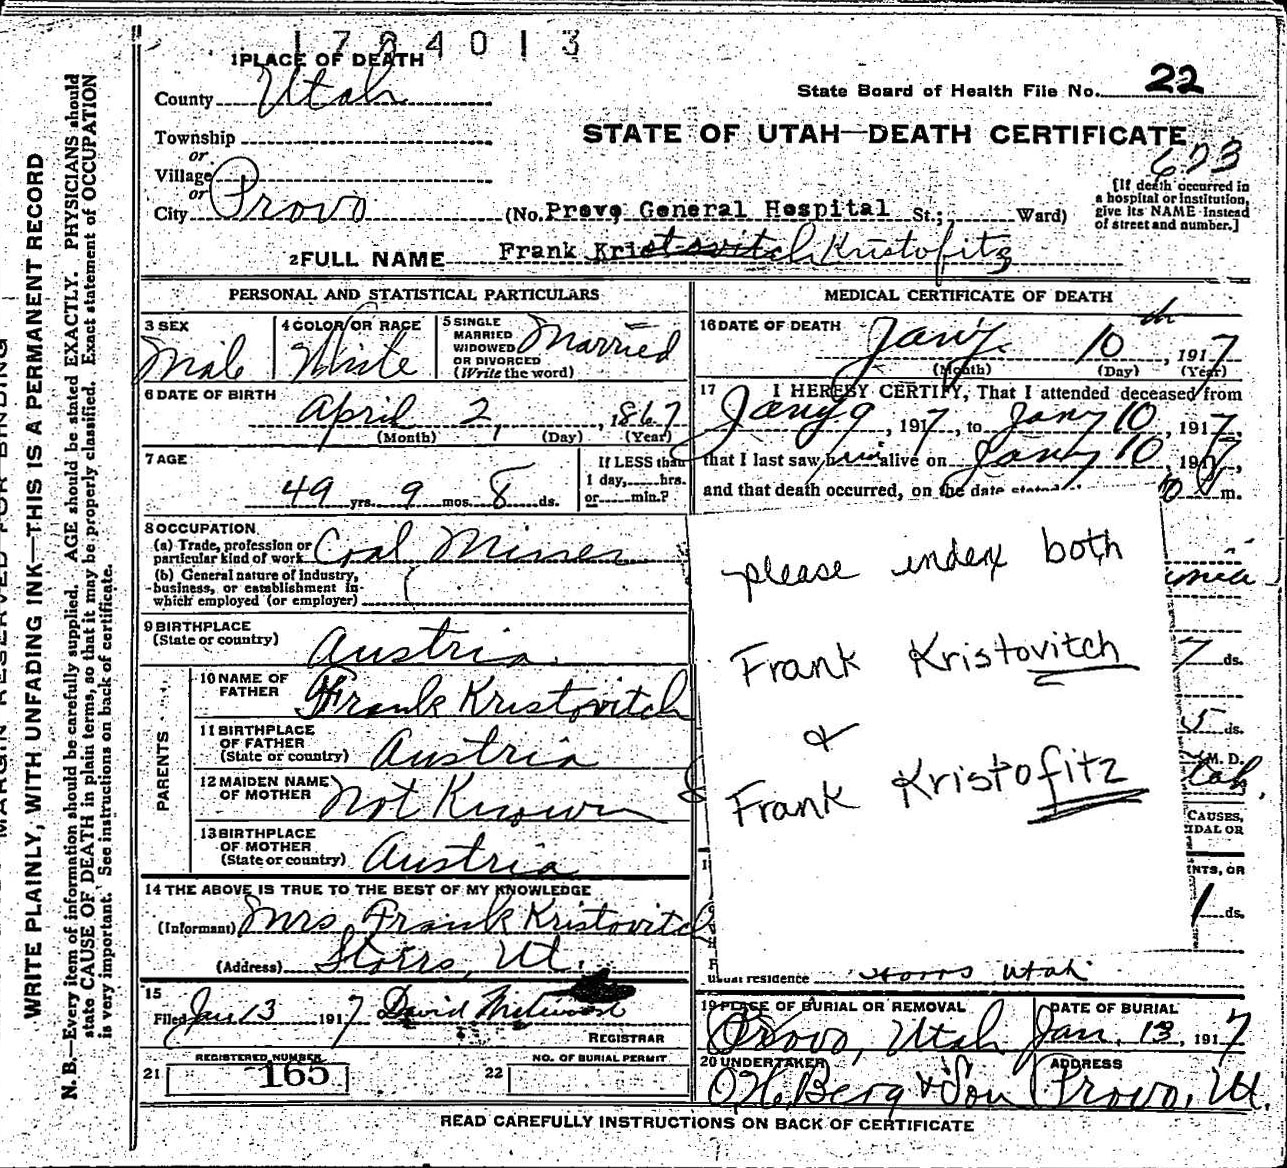 1704013
1 PLACE OF DEATH
County Utah
State Board of Health File No. 22
Township
or
Village
or
City Provo
STATE OF UTAH—DEATH CERTIFICATE
673
(No. Provo General Hospital St.; Ward)
[If death occurred in
a hospital or institution,
give its NAME instead
of street and number.]
2 FULL NAME Frank Kristovitch Kristofitz
PERSONAL AND STATISTICAL PARTICULARS
3 SEX
Male
4 COLOR OR RACE
White
5 SINGLE
MARRIED
WIDOWED
OR DIVORCED
(Write the word)
Married
6 DATE OF BIRTH
April 2, 1867
(Month) (Day) (Year)
7 AGE
49 yrs. 9 mos. 8 ds.
If LESS than
1 day, hrs.
or min.?
8 OCCUPATION
(a) Trade, profession or
particular kind of work Coal Miner
(b) General nature of Industry,
business, or establishment in
which employed (or employer)
9 BIRTHPLACE
(State or country) Austria
PARENTS
10 NAME OF
FATHER Frank Kristovitch
11 BIRTHPLACE
OF FATHER
(State or country) Austria
12 MAIDEN NAME
OF MOTHER Not Known
13 BIRTHPLACE
OF MOTHER
(State or country) Austria
14 THE ABOVE IS TRUE TO THE BEST OF MY KNOWLEDGE
(Informant) Mrs Frank Kristovitch
(Address) Storrs, Ut.
15
Filed Jan 13 1917 David
REGISTRAR
REGISTERED NUMBER
21 165
NO. OF BURIAL PERMIT
22
MEDICAL CERTIFICATE OF DEATH
16 DATE OF DEATH
Jany. 10th, 1917
(Month) (Day) (Year)
17 I HEREBY CERTIFY, That I attended deceased from
Jany 9, 1917, to Jany 10, 1917,
that I last saw him alive on Jany 10, 1917,
and that death occurred, on the date stated m.
please index both
Frank Kristovitch
&
Frank Kristofitz
7 ds.
5 ds.
M. D.
CAUSES,
IDAL OR
NTS, OR
1 ds.
usual residence Storrs Utah
19 PLACE OF BURIAL OR REMOVAL
Provo, Utah
DATE OF BURIAL
Jan. 13, 1917
20 UNDERTAKER
O.H. Berg & Son
ADDRESS
Provo, Ut.
READ CAREFULLY INSTRUCTIONS ON BACK OF CERTIFICATE
MARGIN RESERVED FOR BINDING
WRITE PLAINLY, WITH UNFADING INK—THIS IS A PERMANENT RECORD
N. B.—Every item of information should be carefully supplied. AGE should be stated EXACTLY. PHYSICIANS should
state CAUSE OF DEATH in plain terms, so that it may be properly classified. Exact statement of OCCUPATION
is very important. See instructions on back of certificate.